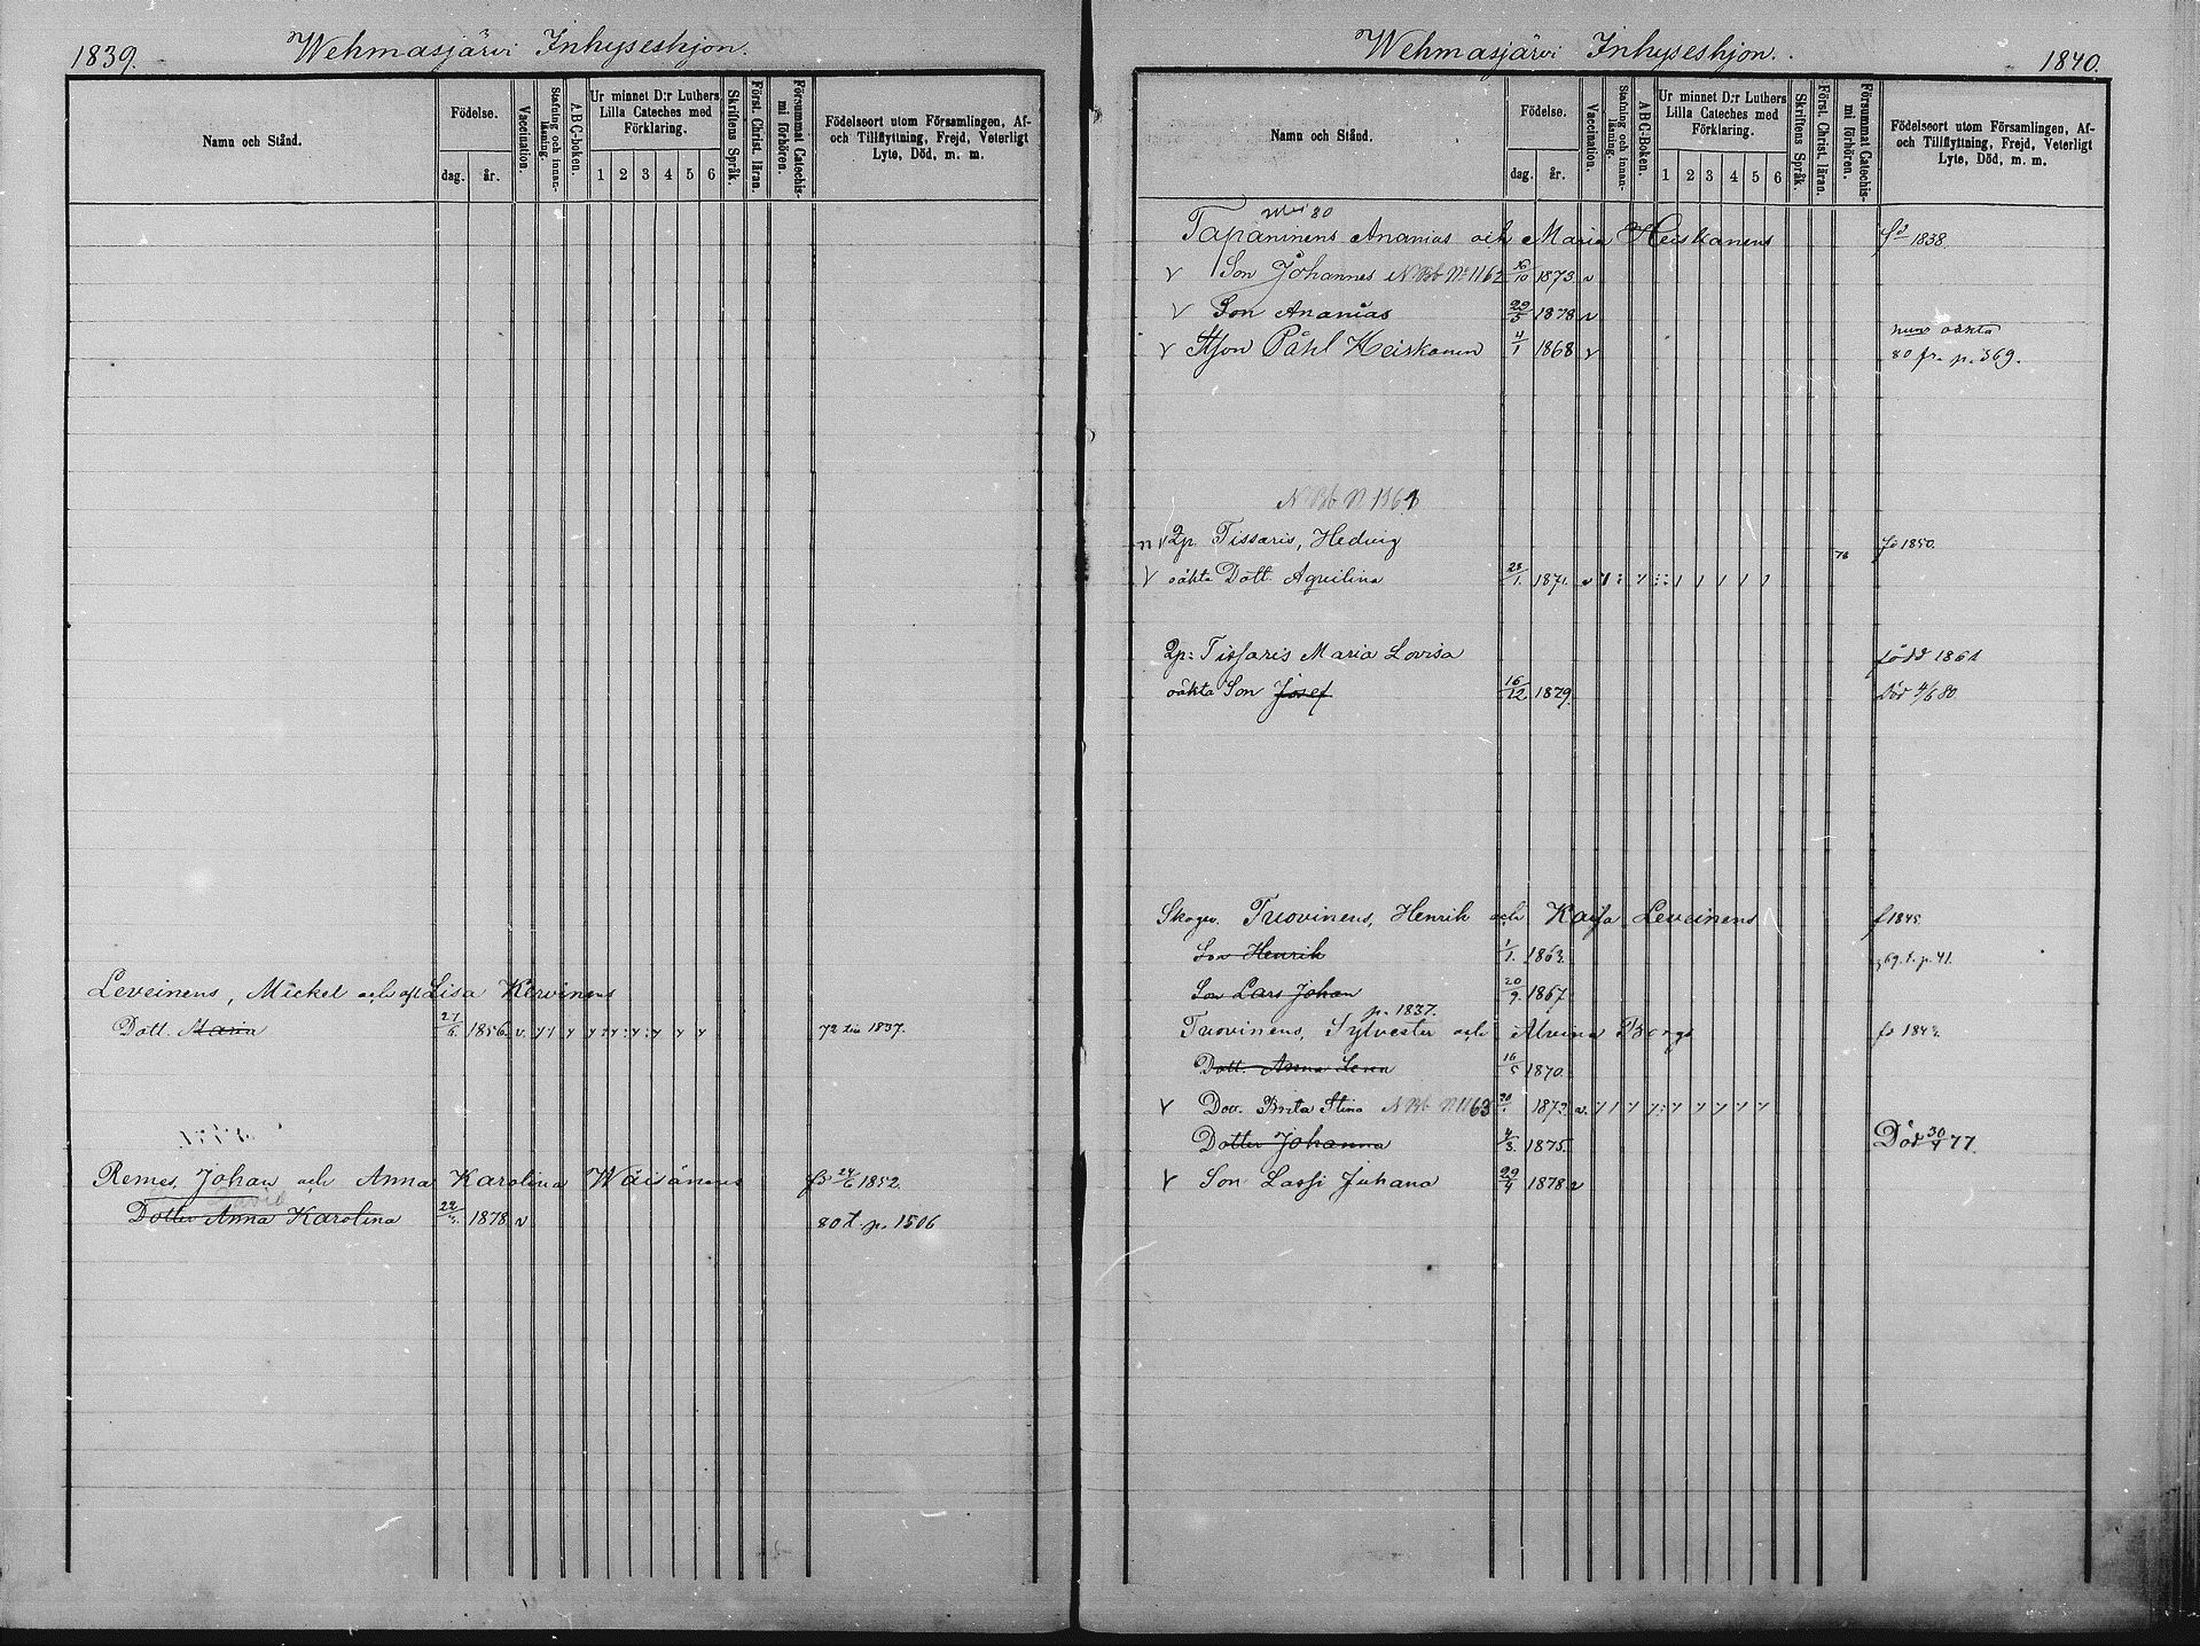 1839.
Wehmasjärvi Inhyseshjon.
Namn och Stånd.
Födelse.
dag. år.
Vaccination.
Stafning och innanläsning.
ABC-boken.
Ur minnet D:r Luthers Lilla Cateches med Förklaring.
1 2 3 4 5 6
Skriftens Språk.
Först. Christ. läran.
Försummat Catechismi förhören.
Födelseort utom Församlingen, Af- och Tillflyttning, Frejd, Veterligt Lyte, Död, m. m.
Leveinens, Mickel och Lisa Kervinens
Dott. Maria 27/6. 1856. v. 72 1837.
Remes, Johan och Anna Karolina Wäisänens fd 24/6 1852.
Dotter Anna Karolina 1878 v 80 t. p. 1506
Wehmasjärvi Inhyseshjon.
1840.
Namn och Stånd.
Födelse.
dag. år.
Vaccination.
Stafning och innanläsning.
ABC-Boken.
Ur minnet D:r Luthers Lilla Cateches med Förklaring.
1 2 3 4 5 6
Skriftens Språk.
Först. Christ. läran.
Försummat Catechismi förhören.
Födelseort utom Församlingen, Af- och Tillflyttning, Frejd, Veterligt Lyte, Död, m. m.
80
Tapaninens Ananias och Maria Heiskanens fd 1838.
v Son Johannes N Bb No 1162 1873. v
v Son Ananias 29/5 1878 v
hans oäkta
v Påhl Heiskanen 4/1 1868 v 80 fr. p. 369.
N Bb N
Tissaris, Hedvig fd 1850.
78
v oäkta Dott. Aquilina 28/1. 1871. v
Tissaris Maria Lovisa född 1861
oäkta Son Josef 16/12 1879. död 4/6 80
Skogsv. Tuovinens, Henrik och Kaisa Leveinens f 1845
Son Henrik 1/1. 1863. 69. t. p. 41.
Son Lars Johan 20/9. 1867
p. 1837.
Tuovinens, Sylvester och Alvina Bergs
Dott. Anna Lena 16/5 1870
v Dott. Brita Stina N Bb N 1163
Dotter Johanna 4/3. 1875. Död 30/4 77.
v Son Lassi Juhana 29/4 1878 v